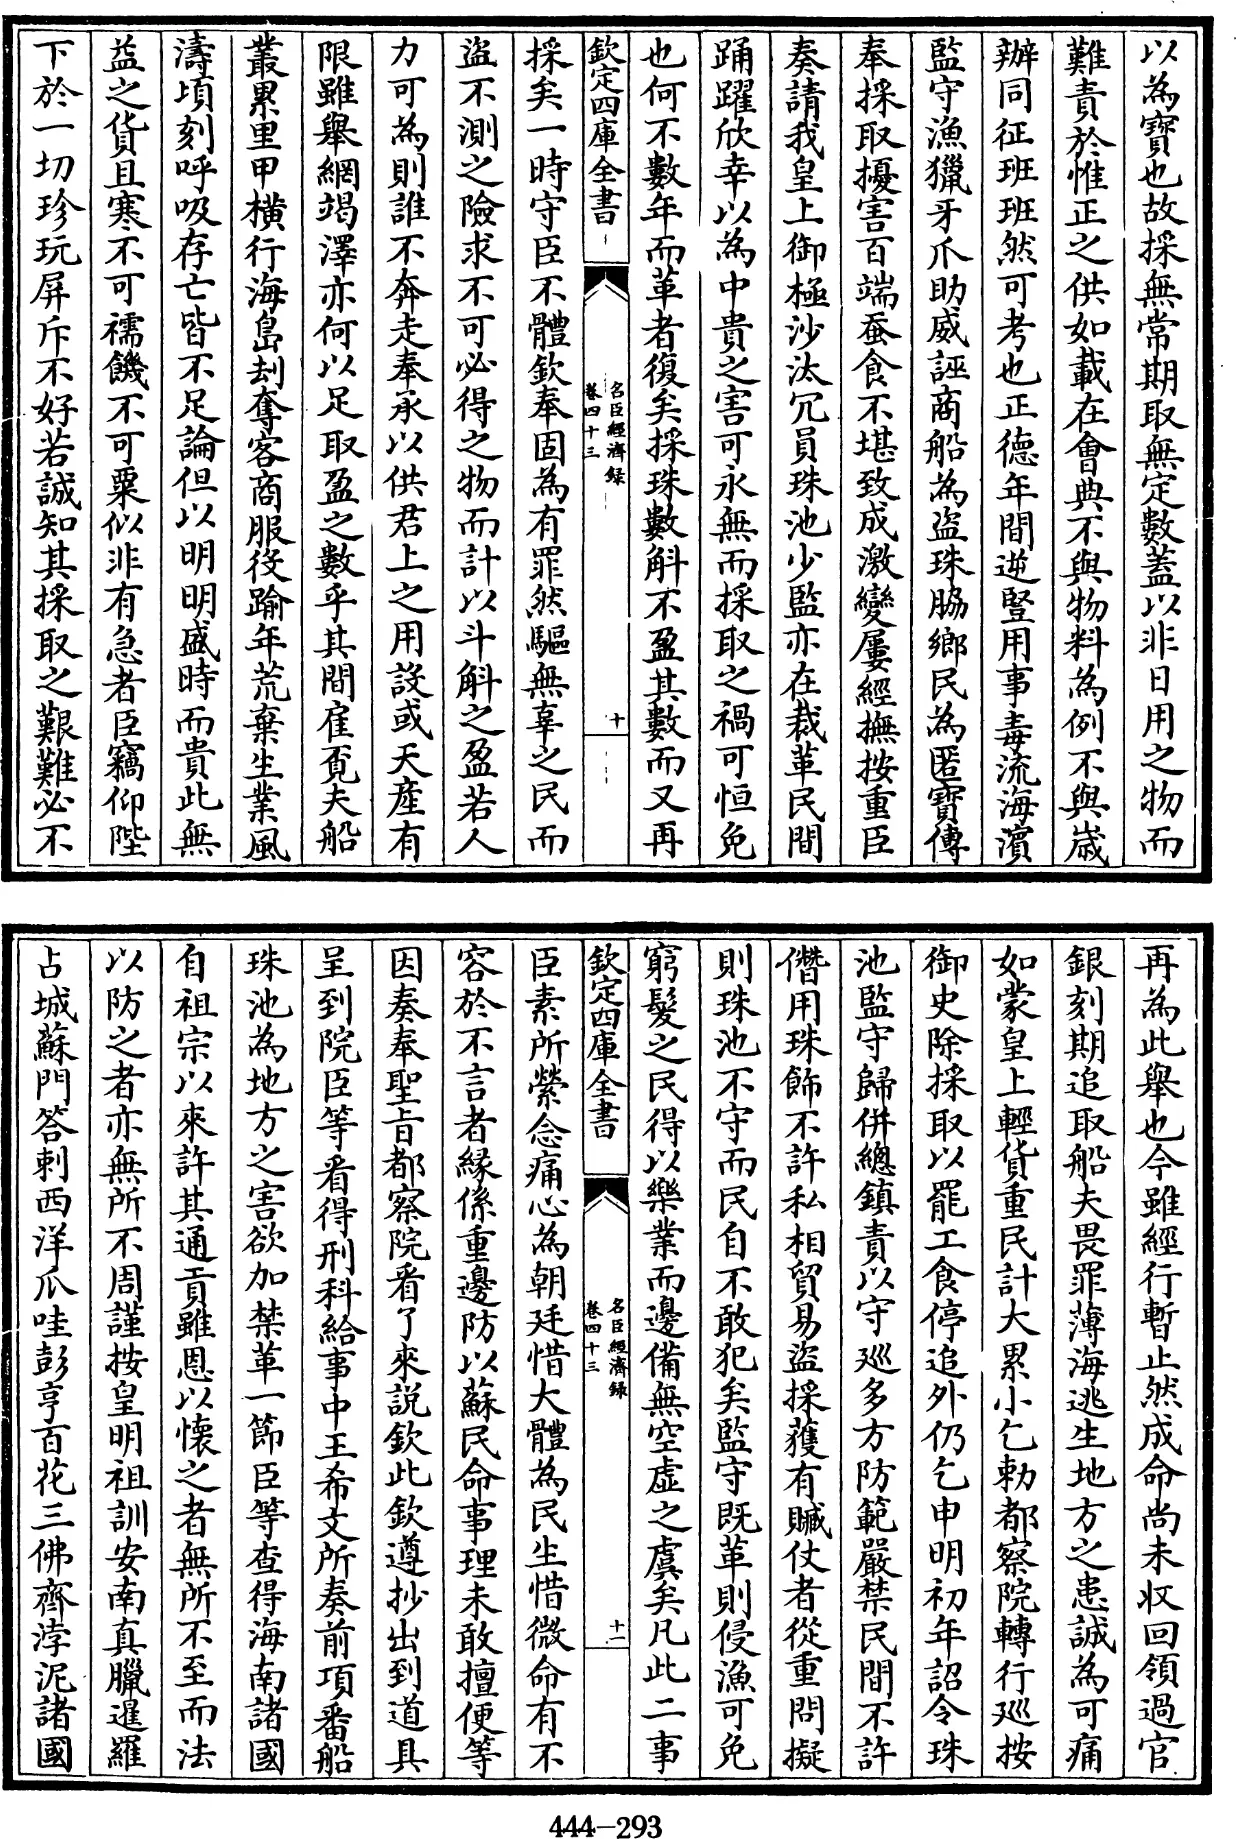 以為寳也故採無常期取無定數蓋以非日用之物而
難責於惟正之供如載在會典不與物料為例不與歲
辦同征班班然可考也正德年間逆豎用事毒流海濱
監守漁獵牙爪助威誣商船為盜珠脇鄉民為匿寳傳
奉採取擾害百端蚕食不堪致成激變屢經撫按重臣
奏請我皇上御極沙汰冗員珠池少監亦在裁革民間
踊躍欣幸以為中貴之害可永無而採取之禍可恒免
也何不數年而革者復矣採珠數斛不盈其數而又再
欽定四庫全書
名臣經濟録
卷四十三
十
採矣一時守臣不體欽奉固為有罪然驅無辜之民而
盜不測之險求不可必得之物而計以斗斛之盈若人
力可為則誰不奔走奉承以供君上之用設或天產有
限雖舉網竭澤亦何以足取盈之數乎其間雇覓夫船
叢累里甲橫行海島刦奪客商服役踰年荒棄生業風
濤頃刻呼吸存亡皆不足論但以明明盛時而貴此無
益之貨且寒不可襦饑不可粟似非有急者臣竊仰陛
下於一切珍玩屏斥不好若誠知其採取之艱難必不
再為此舉也今雖經行暫止然成命尚未収回領過官
銀刻期追取船夫畏罪薄海逃生地方之患誠為可痛
如蒙皇上輕貨重民計大累小乞勅都察院轉行廵按
御史除採取以罷工食停追外仍乞申明初年詔令珠
池監守歸併總鎮責以守廵多方防範嚴禁民間不許
僭用珠飾不許私相貿易盜採獲有贓仗者從重問擬
則珠池不守而民自不敢犯矣監守既革則侵漁可免
窮髮之民得以樂業而邊備無空虛之虞矣凡此二事
欽定四庫全書
名臣經濟録
卷四十三
十一
臣素所縈念痛心為朝廷惜大體為民生惜微命有不
容於不言者緣係重邊防以蘇民命事理未敢擅便等
因奏奉聖旨都察院看了來說欽此欽遵抄出到道具
呈到院臣等看得刑科給事中王希文所奏前項番船
珠池為地方之害欲加禁革一節臣等查得海南諸國
自祖宗以來許其通貢雖恩以懷之者無所不至而法
以防之者亦無所不周謹按皇明祖訓安南真臘暹羅
占城蘇門答剌西洋爪哇彭亨百花三佛齊浡泥諸國
444-293